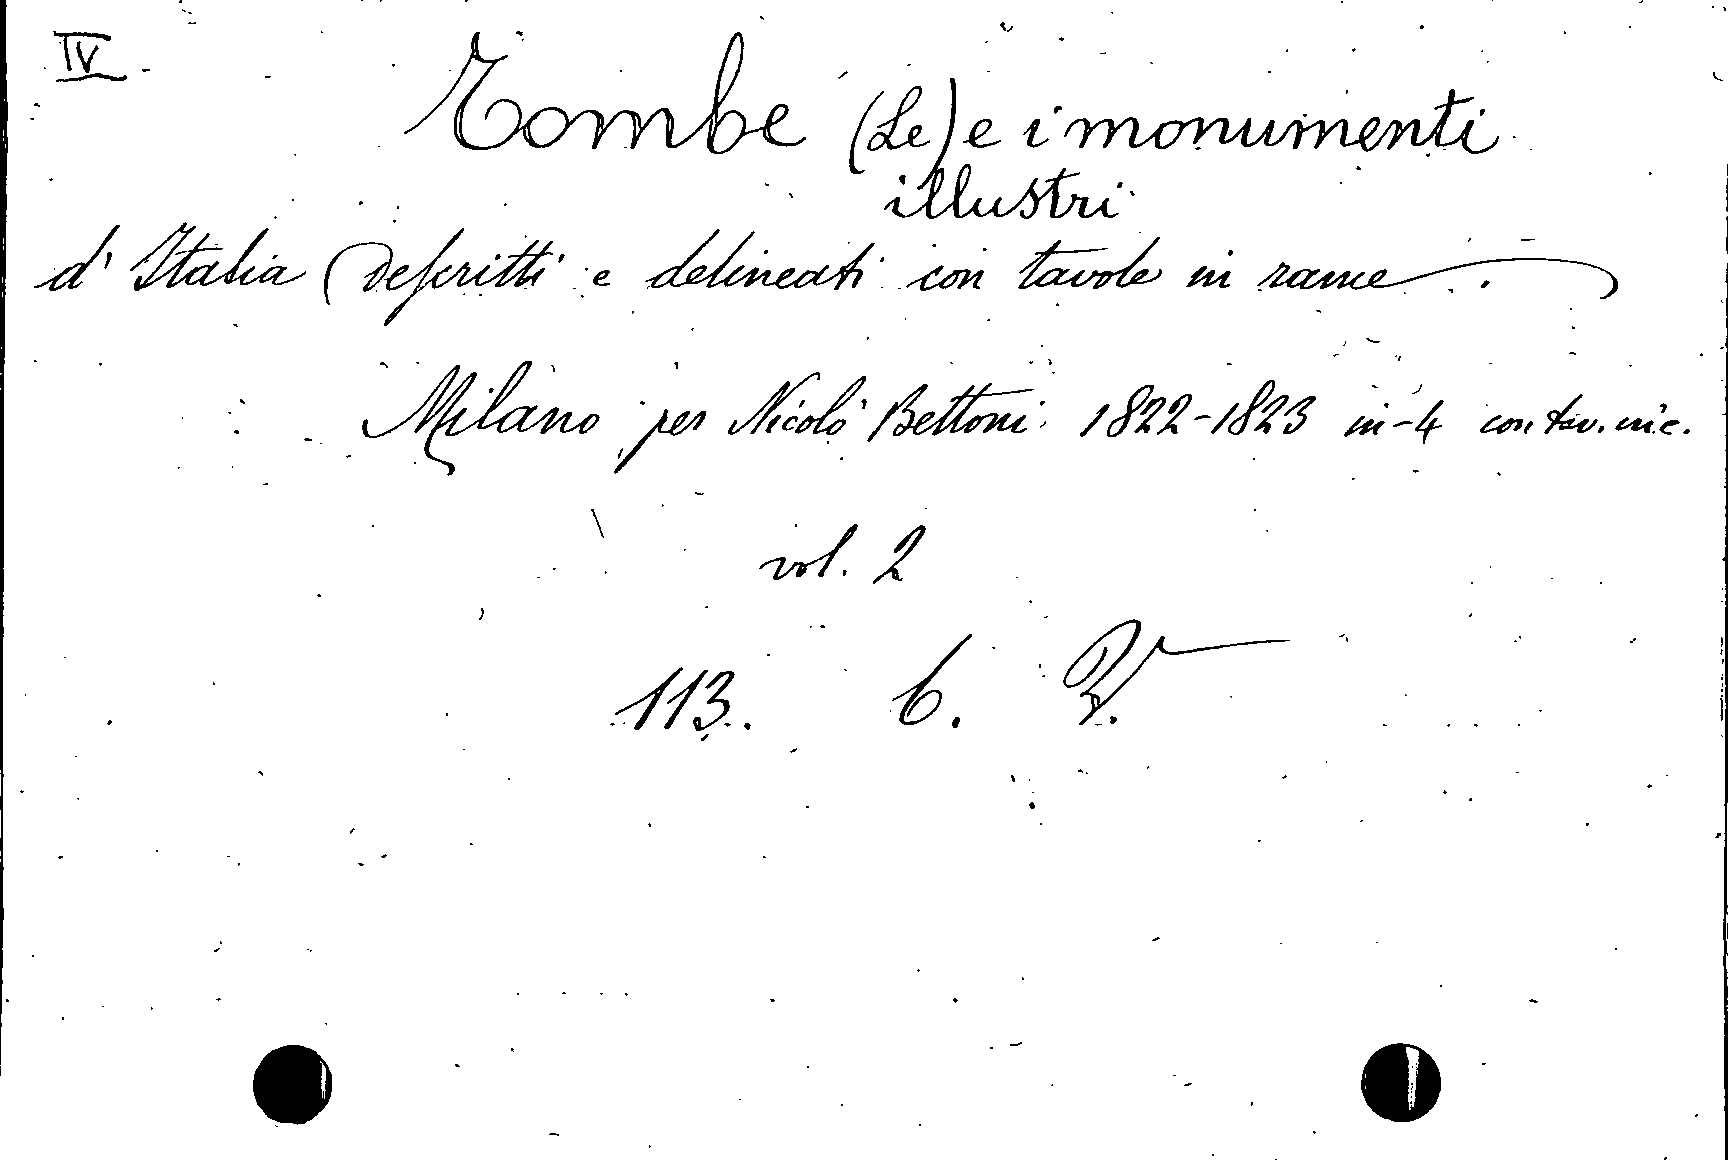 IV
Tombe (Le) e i monumenti
illustri
d'Italia descritti e delineati con tavole in rame.
Milano per Nicolò Bettoni 1822-1823 in-4 con tav. inc.
vol. 2
113. 6.